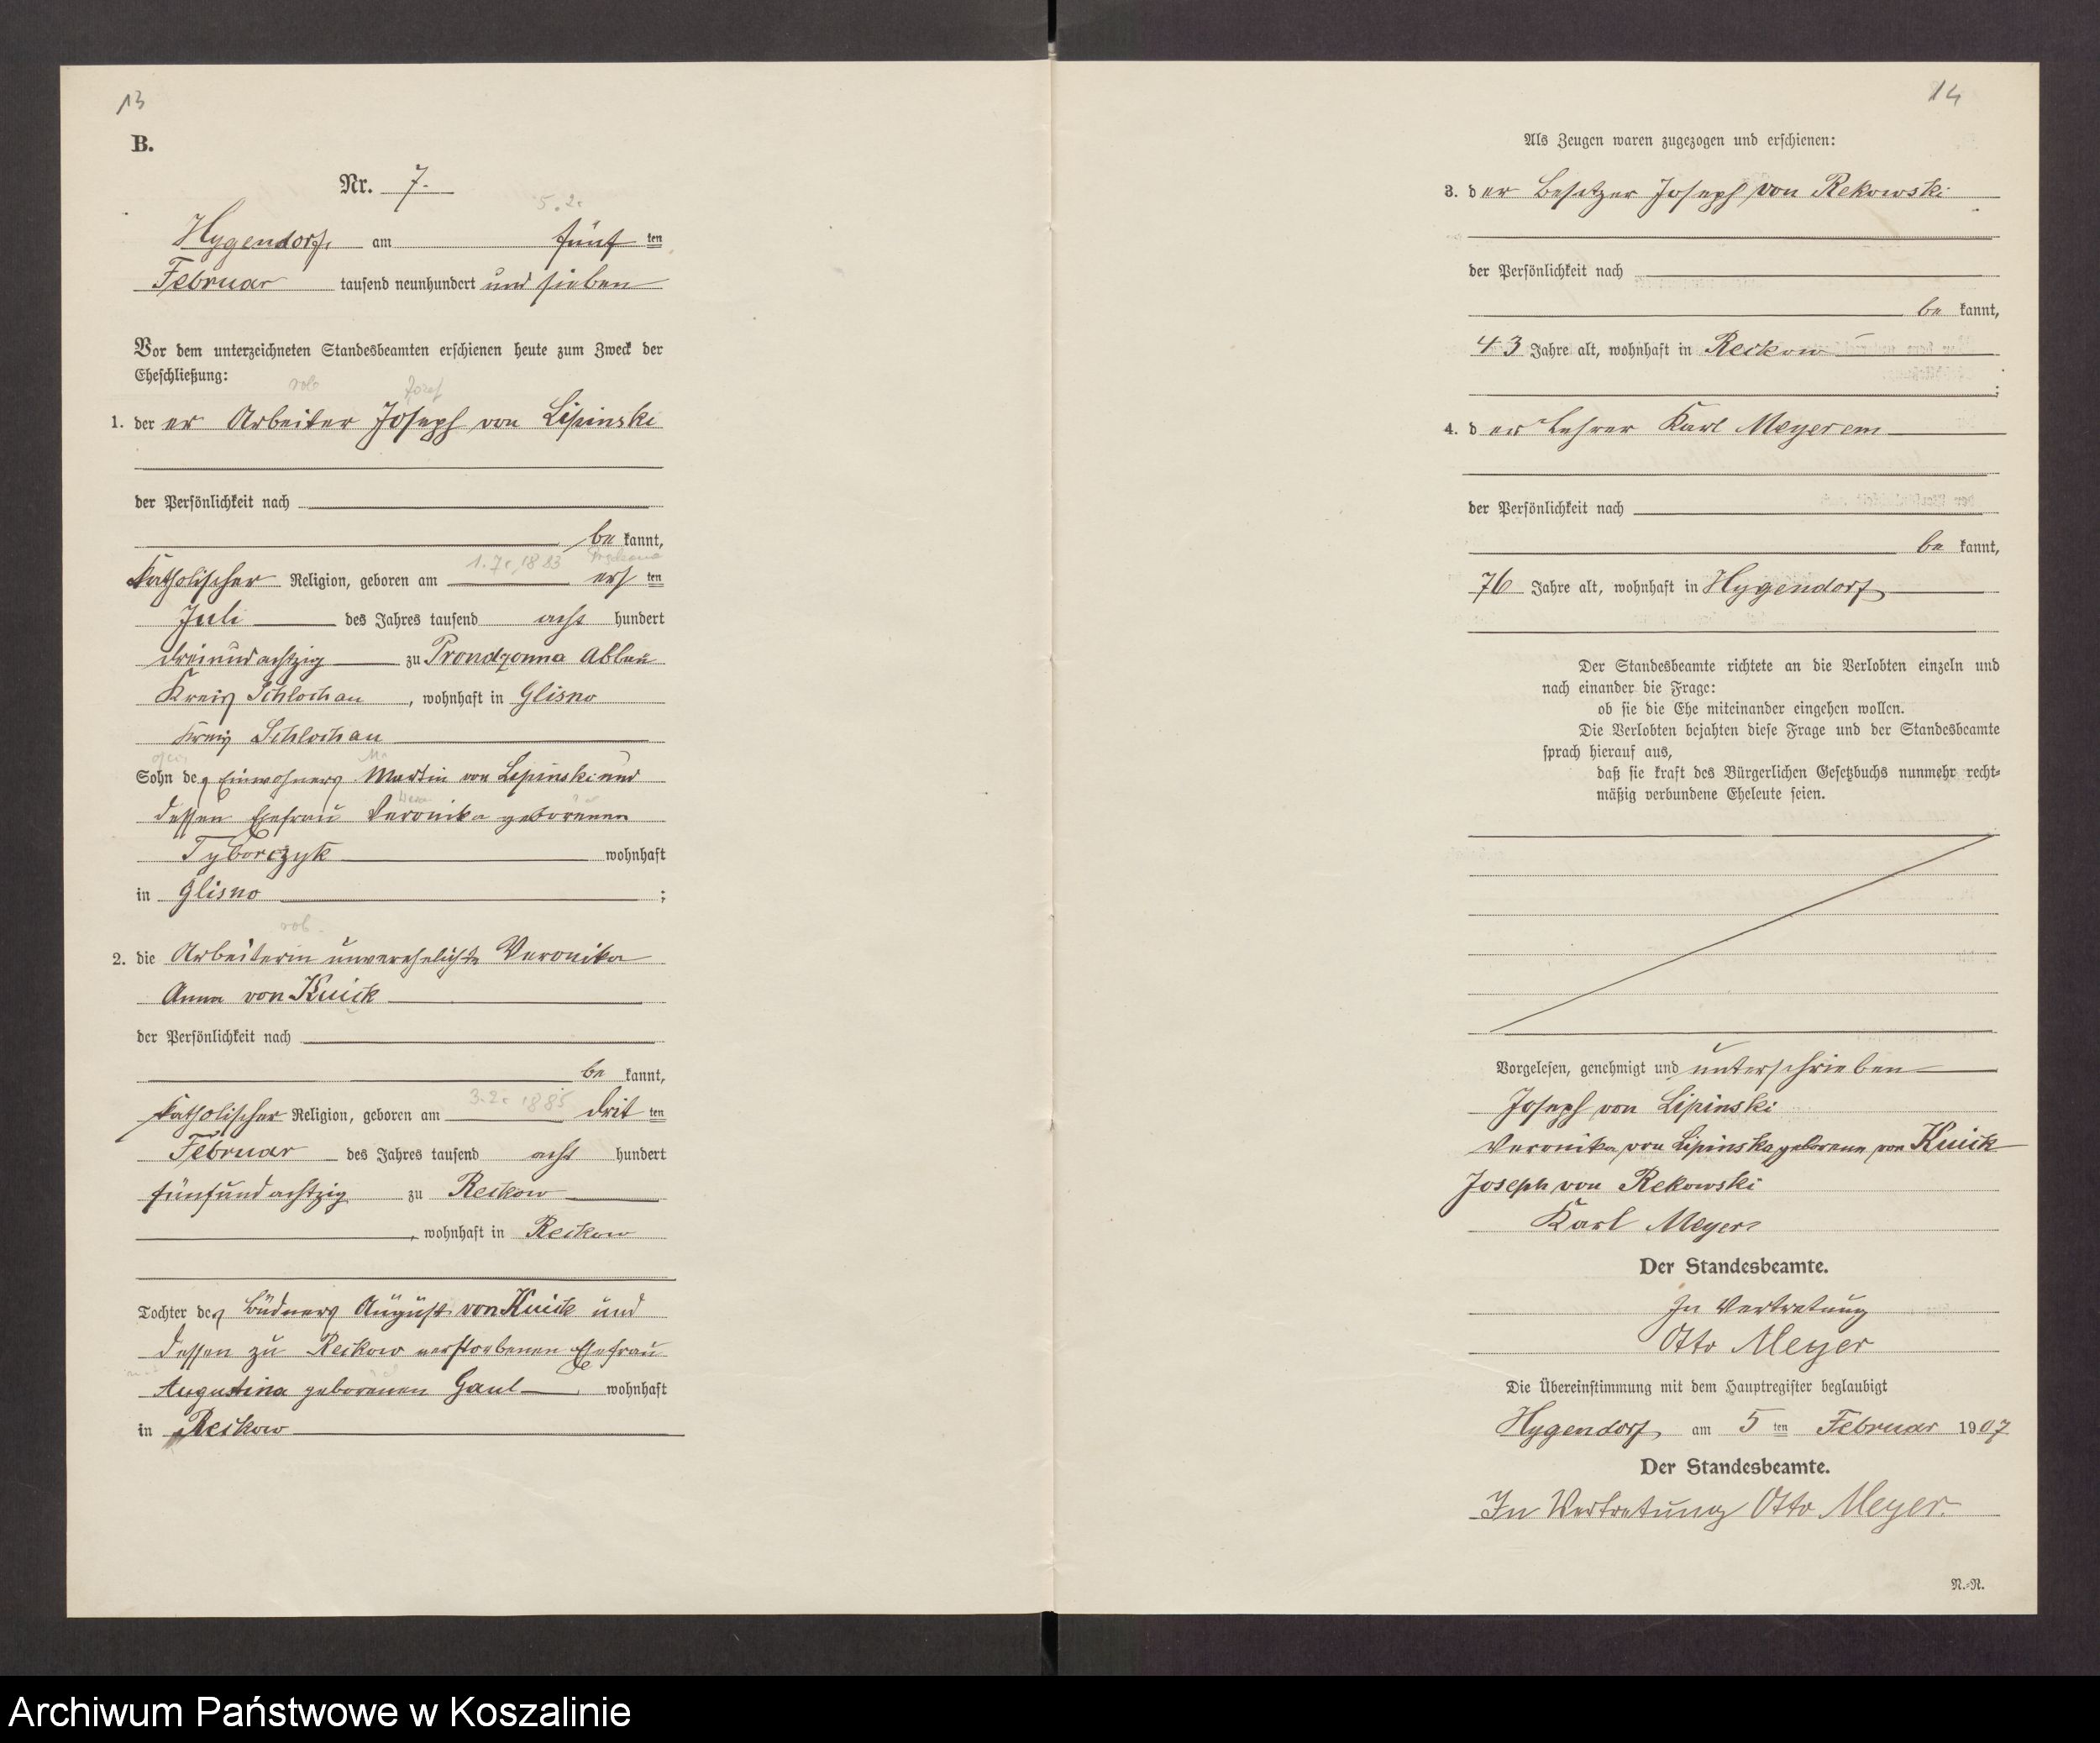 13
B.
Nr. 7.
5.2.
Hygendorf, am fünf ten
Februar tausend neunhundert und sieben
Vor dem unterzeichneten Standesbeamten erschienen heute zum Zweck der
Eheschließung:
rob Józef
1. der er Arbeiter Joseph von Lipinski
der Persönlichkeit nach
be kannt,
1.7.1883
katholischer Religion, geboren am ers ten
Juli des Jahres tausend acht hundert
dreiundachtzig zu Prondzonna Abbau
Kreis Schlochau, wohnhaft in Glisno
Kreis Schlochau
Sohn des Einwohners Martin von Lipinski und
dessen Ehefrau Veronika geborenen
Tyborczyk wohnhaft
in Glisno ;
rob.
2. die Arbeiterin unverehelichte Veronika
Anna von Kuick
der Persönlichkeit nach
be kannt,
3.2. 1885
katholischer Religion, geboren am drit ten
Februar des Jahres tausend acht hundert
fünfundachtzig zu Reckow
, wohnhaft in Reckow
Tochter des Büdners August von Kuick und
dessen zu Reckow verstorbenen Ehefrau
Augustina geborenen Gaul wohnhaft
in Reckow
14
Als Zeugen waren zugezogen und erschienen:
3. d er Besitzer Joseph von Rekowski
der Persönlichkeit nach
be kannt,
43 Jahre alt, wohnhaft in Reckow
;
4. d er Lehrer Karl Meyer em
der Persönlichkeit nach
be kannt,
76 Jahre alt, wohnhaft in Hygendorf
Der Standesbeamte richtete an die Verlobten einzeln und
nach einander die Frage:
ob sie die Ehe miteinander eingehen wollen.
Die Verlobten bejahten diese Frage und der Standesbeamte
sprach hierauf aus,
daß sie kraft des Bürgerlichen Gesetzbuchs nunmehr recht-
mäßig verbundene Eheleute seien.
Vorgelesen, genehmigt und unterschrieben
Joseph von Lipinski
Veronika von Lipinska geborene von Kuick
Joseph von Rekowski
Karl Meyer
Der Standesbeamte.
In Vertretung
Otto Meyer
Die Übereinstimmung mit dem Hauptregister beglaubigt
Hygendorf, am 5 ten Februar 1907
Der Standesbeamte.
In Vertretung Otto Meyer.
N.-N.
Archiwum Państwowe w Koszalinie